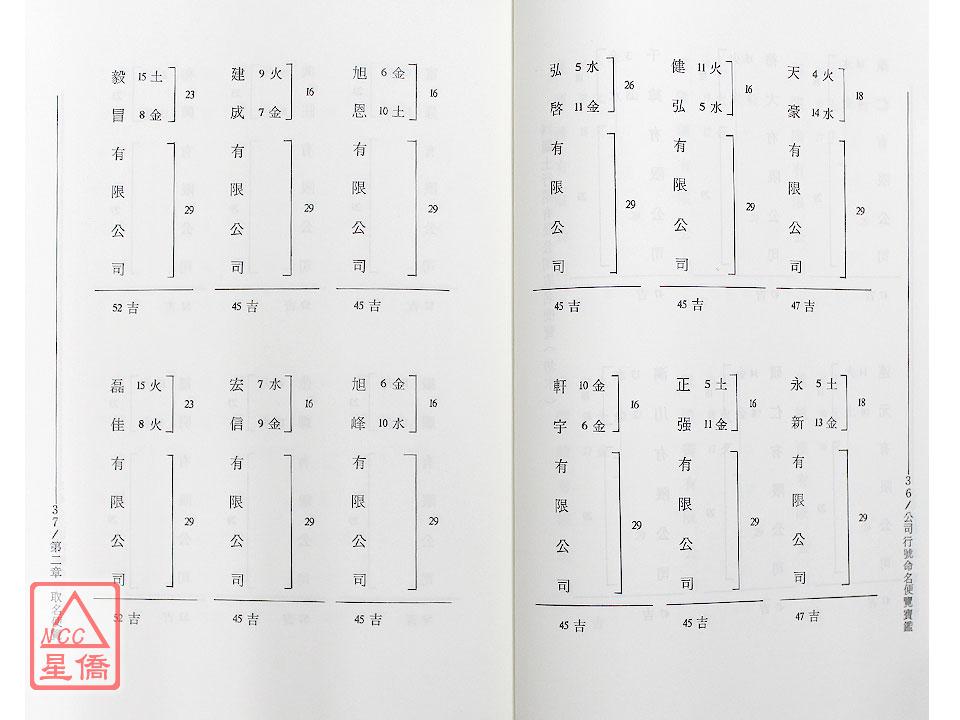 36/公司行號命名便覽寶鑑
天 4 火
豪 14 水
18
有限公司
29
47 吉
健 11 火
弘 5 水
16
有限公司
29
45 吉
弘 5 水
啓 11 金
26
有限公司
29
45 吉
永 5 土
新 13 金
18
有限公司
29
47 吉
正 5 土
强 11 金
16
有限公司
29
45 吉
軒 10 金
宇 6 金
16
有限公司
29
45 吉
旭 6 金
恩 10 土
16
有限公司
29
45 吉
建 9 火
成 7 金
16
有限公司
29
45 吉
毅 15 土
冒 8 金
23
有限公司
29
52 吉
旭 6 金
峰 10 水
16
有限公司
29
45 吉
宏 7 水
信 9 金
16
有限公司
29
45 吉
磊 15 火
佳 8 火
23
有限公司
29
52 吉
37/第二章 取名便
NCC
星僑